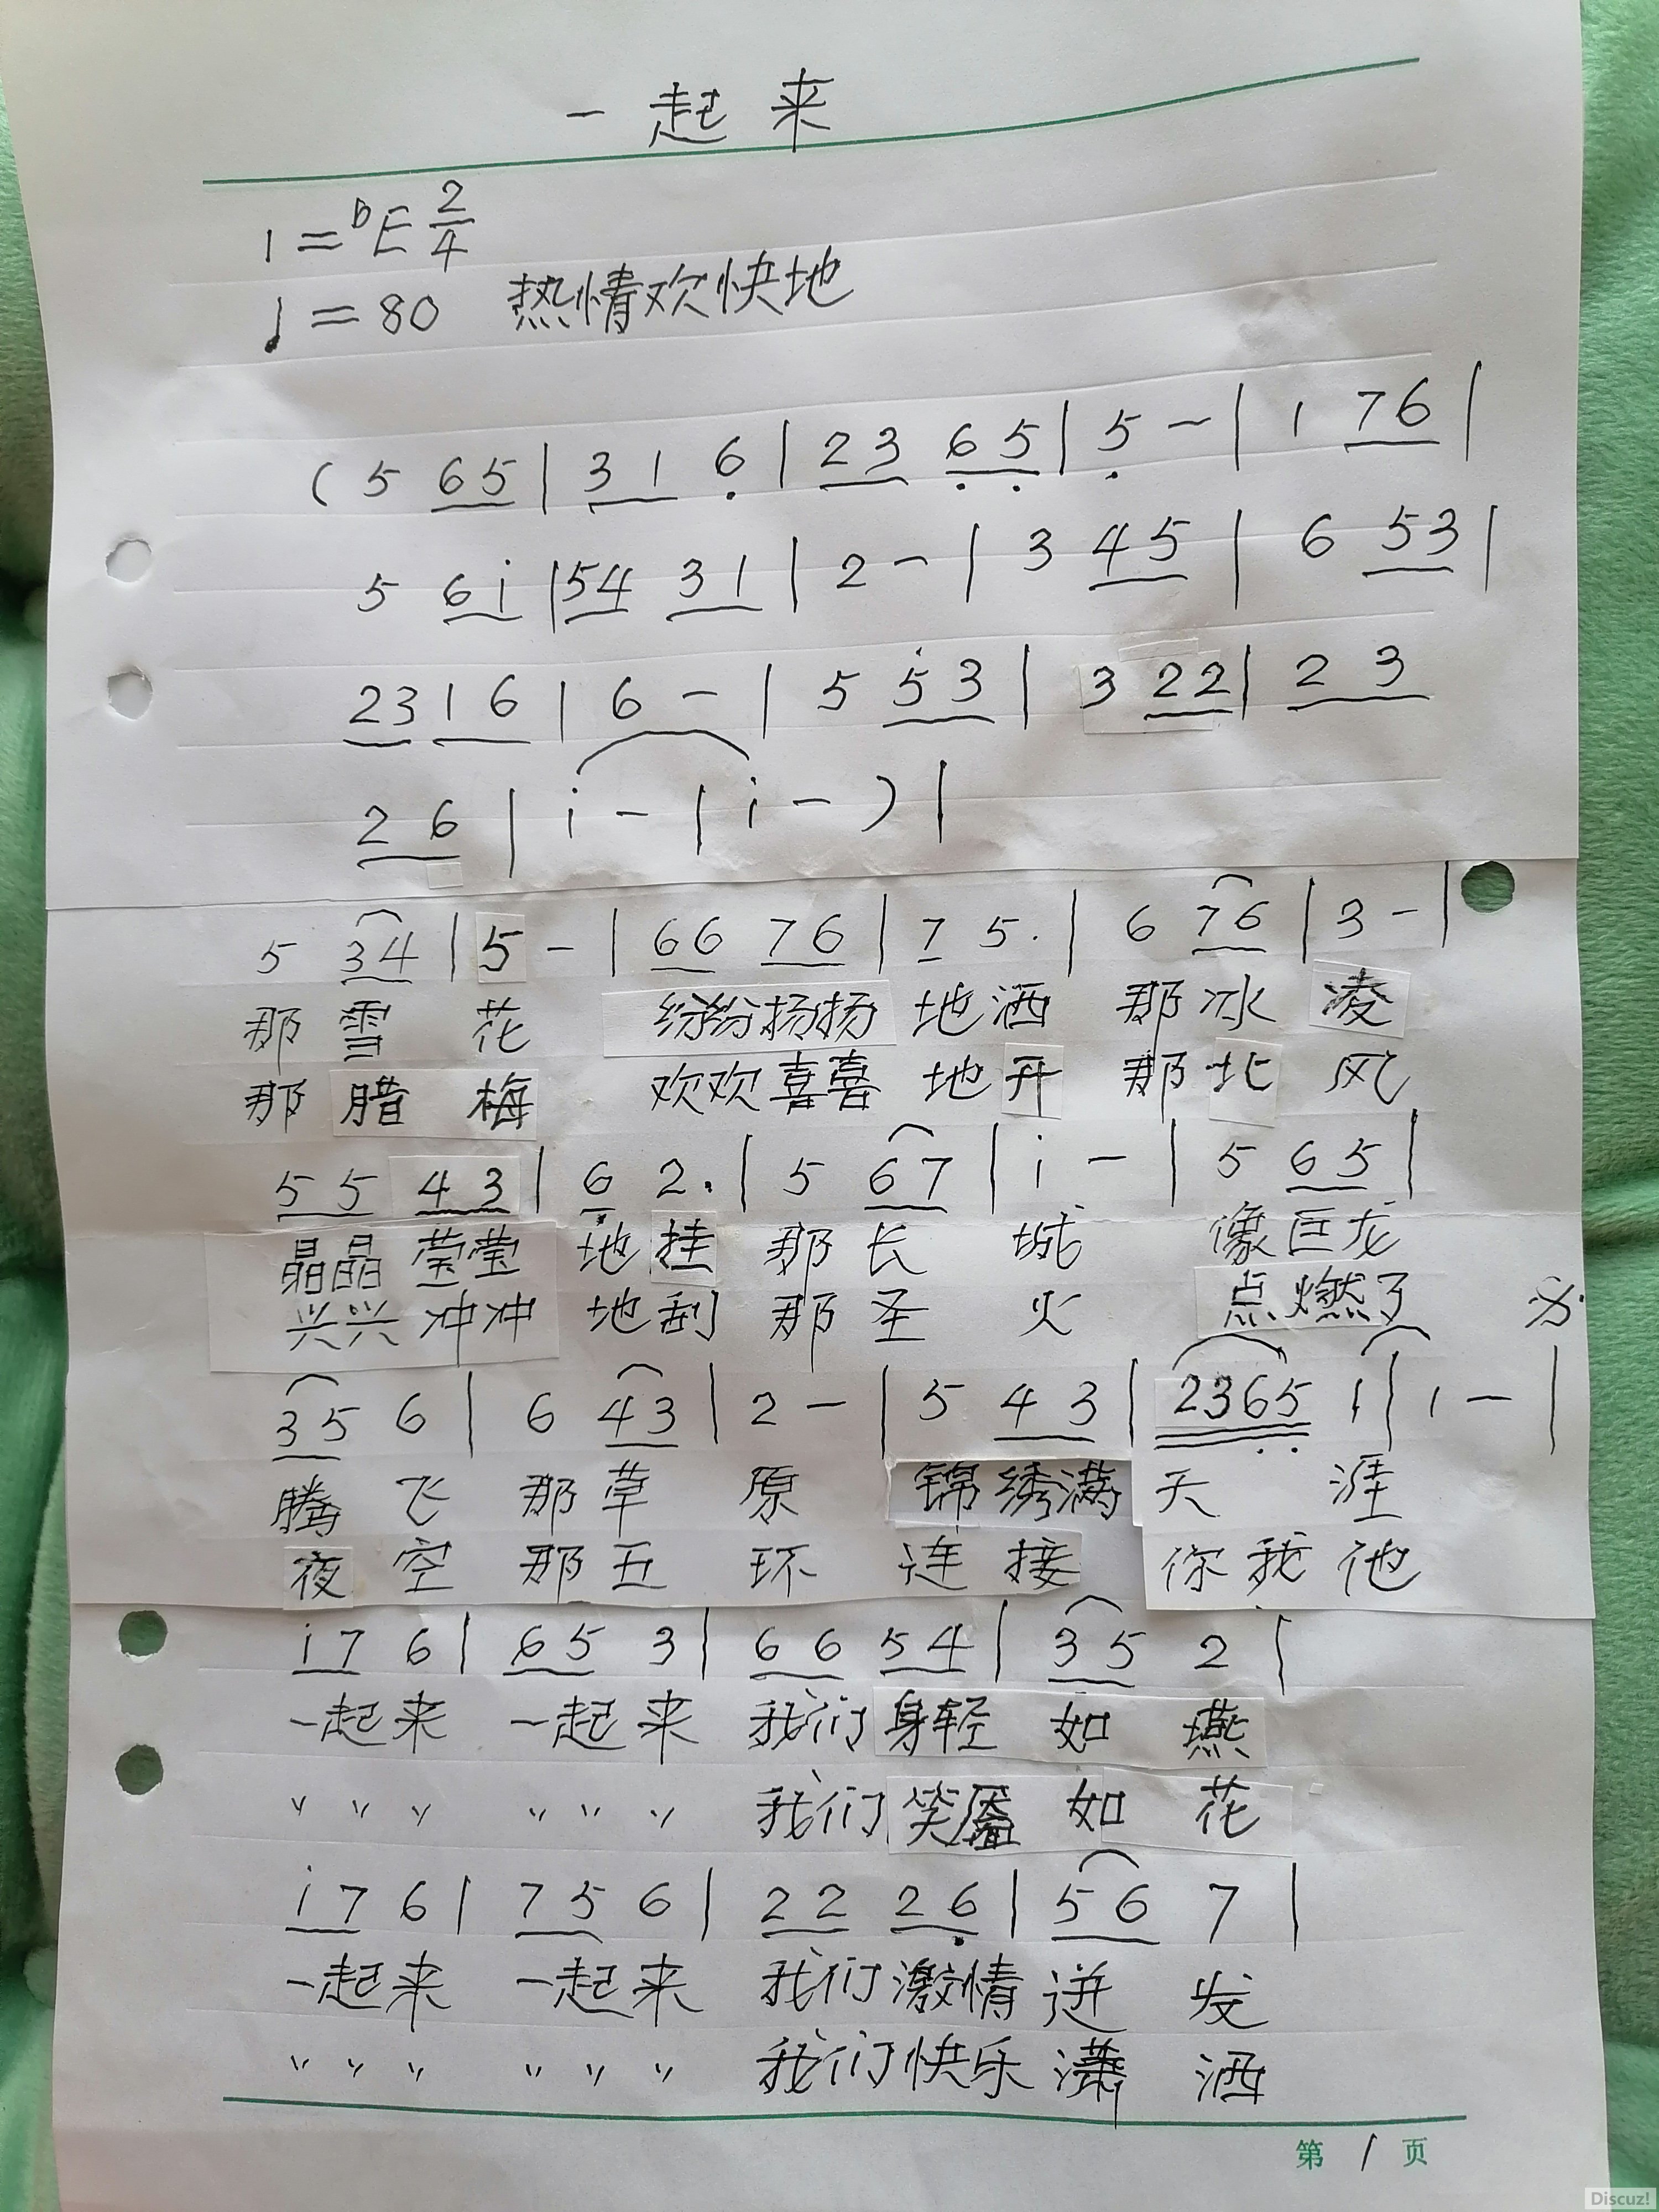 一起来
1=ᵇE 2/4
♩=80 热情欢快地
(5 65 | 31 6̣ | 23 6̣5̣ | 5̣ - | 1 76 |
5 6i | 54 31 | 2 - | 3 45 | 6 53 |
23 16 | 6 - | 5 5̇3 | 3 22 | 23
26 | i - | i - ) |
5 34 | 5 - | 66 76 | 7 5. | 6 76 | 3 - |
那雪花 纷纷扬扬地洒 那冰凌
那腊梅 欢欢喜喜地开 那北风
55 43 | 6̣ 2. | 5 67 | i - | 5 65 |
晶晶莹莹地挂 那长城 像巨龙
兴兴冲冲地刮 那圣火 点燃了 𝄋
35 6 | 6 43 | 2 - | 5 43 | 236̣5̣ 1 | 1 - |
腾飞 那草原 锦绣满天涯
夜空 那五环 连接你我他
i7 6 | 65 3 | 66 54 | 35 2 |
一起来 一起来 我们身轻如燕
〃〃〃 〃〃〃 我们笑靥如花
i7 6 | 75 6 | 22 26̣ | 56 7 |
一起来 一起来 我们激情迸发
〃〃〃 〃〃〃 我们快乐潇洒
第 1 页
Discuz!